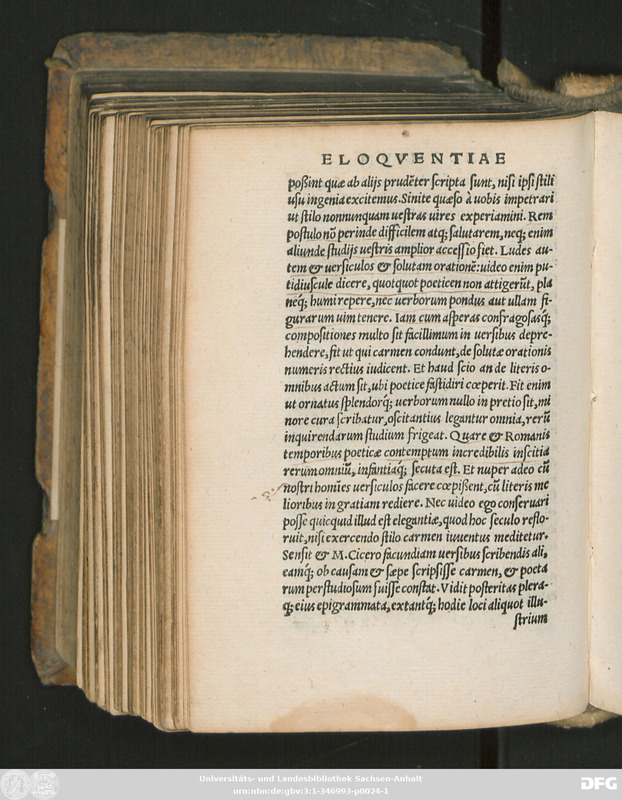 ELOQVENTIAE
poßint quæ ab alijs prudẽter scripta sunt, nisi ipsi stili
usu ingenia excitemus. Sinite quæso à uobis impetrari
ut stilo nonnunquam uestras uires experiamini. Rem
postulo nõ perinde difficilem atq; salutarem, neq; enim
aliunde studijs uestris amplior accessio fiet. Ludes au-
tem & uersiculos & solutam orationẽ: uideo enim pu-
tidiuscule dicere, quotquot poeticen non attigerũt, pla
neq; humi repere, nec uerborum pondus aut ullam fi-
gurarum uim tenere. Iam cum asperas confragosasq;
compositiones multo sit facillimum in uersibus depre-
hendere, fit ut qui carmen condunt, de solutæ orationis
numeris rectius iudicent. Et haud scio an de literis o-
mnibus actum sit, ubi poetice fastidiri cœperit. Fit enim
ut ornatus splendorq; uerborum nullo in pretio sit, mi
nore cura scribatur, oscitantius legantur omnia, rerũ
inquirendarum studium frigeat. Quare & Romanis
temporibus poeticæ contemptum incredibilis inscitia
rerum omniũ, infantiaq; secuta est. Et nuper adeo cũ
nostri homĩes uersiculos facere cœpißent, cũ literis me
lioribus in gratiam rediere. Nec uideo ego conseruari
posse quicquid illud est elegantiæ, quod hoc seculo reflo-
ruit, nisi exercendo stilo carmen iuuentus meditetur.
Sensit & M. Cicero facundiam uersibus scribendis ali,
eamq; ob causam & sæpe scripsisse carmen, & poeta
rum perstudiosum fuisse constat. Vidit posteritas plera-
q; eius epigrammata, extantq; hodie loci aliquot illu-
strium
Universitäts- und Landesbibliothek Sachsen-Anhalt
urn:nbn:de:gbv:3:1-346993-p0024-1
DFG